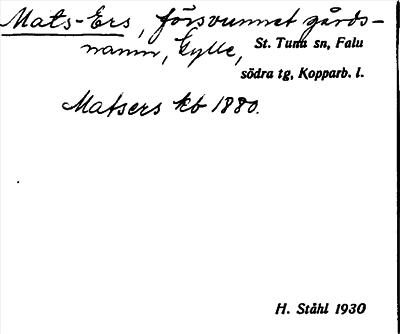 Mats-Ers, försvunnet gårds-
namn, Gylle, St. Tuna sn, Falu
södra tg, Kopparb. l.
Matsers kb 1880.
H. Ståhl 1930